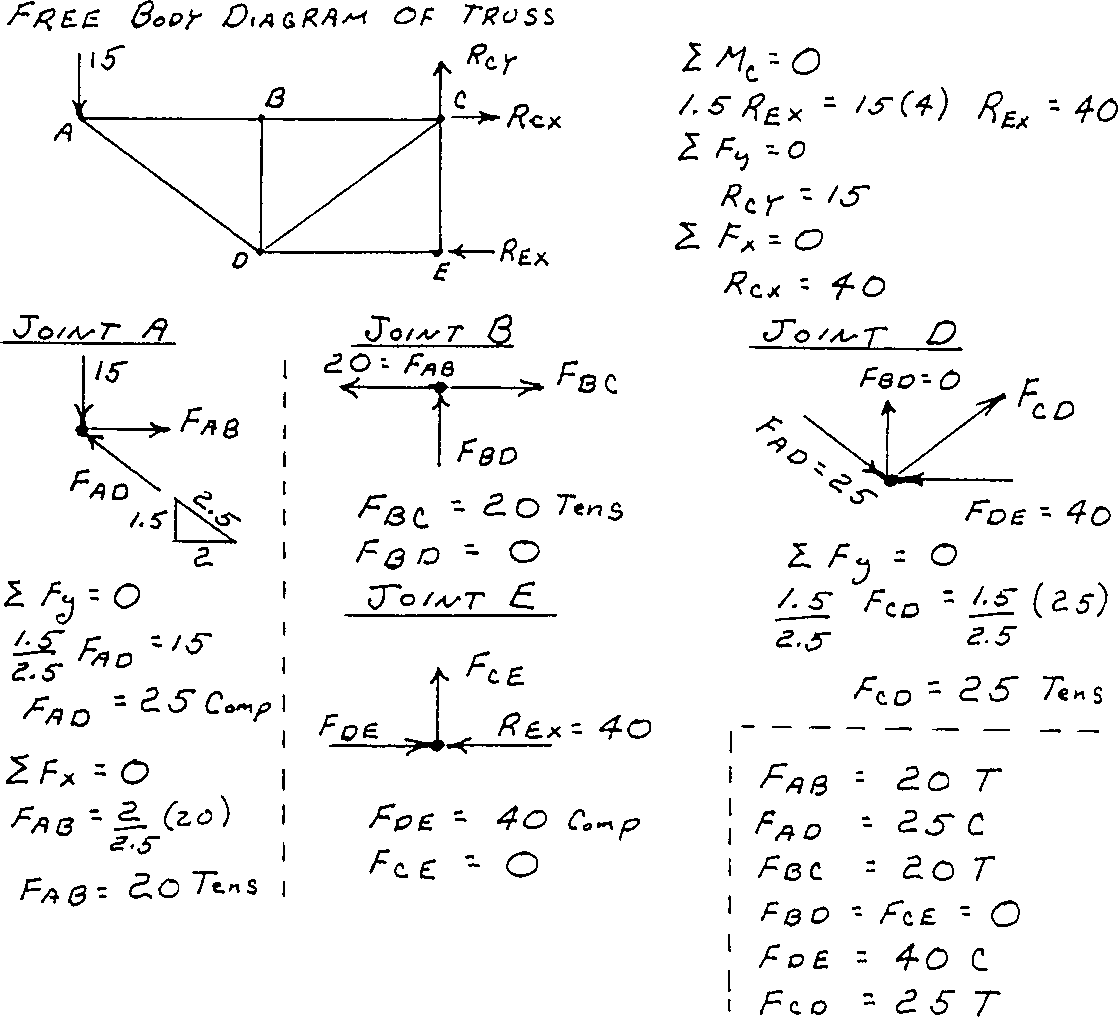 FREE BODY DIAGRAM OF TRUSS
15
RCY
A
B
C
RCX
D
E
REX
Σ MC = 0
1.5 REX = 15(4) REX = 40
Σ Fy = 0
RCY = 15
Σ Fx = 0
RCX = 40
JOINT A
15
FAB
FAD
1.5
2.5
2
Σ Fy = 0
1.5/2.5 FAD = 15
FAD = 25 Comp
Σ Fx = 0
FAB = 2/2.5 (20)
FAB = 20 Tens
JOINT B
20 = FAB
FBC
FBD
FBC = 20 Tens
FBD = 0
JOINT E
FCE
FDE
REX = 40
FDE = 40 Comp
FCE = 0
JOINT D
FBD = 0
FCD
FAD = 25
FDE = 40
Σ Fy = 0
1.5/2.5 FCD = 1.5/2.5 (25)
FCD = 25 Tens
FAB = 20 T
FAD = 25 C
FBC = 20 T
FBD = FCE = 0
FDE = 40 C
FCD = 25 T